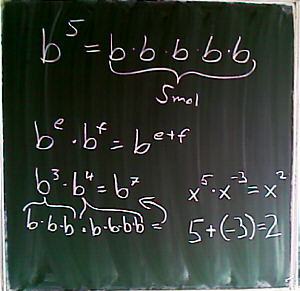 b⁵ = b·b·b·b·b
5mal
bᵉ · bᶠ = bᵉ⁺ᶠ
b³ · b⁴ = b⁷
b·b·b · b·b·b·b =
x⁵ · x⁻³ = x²
5+(-3)=2